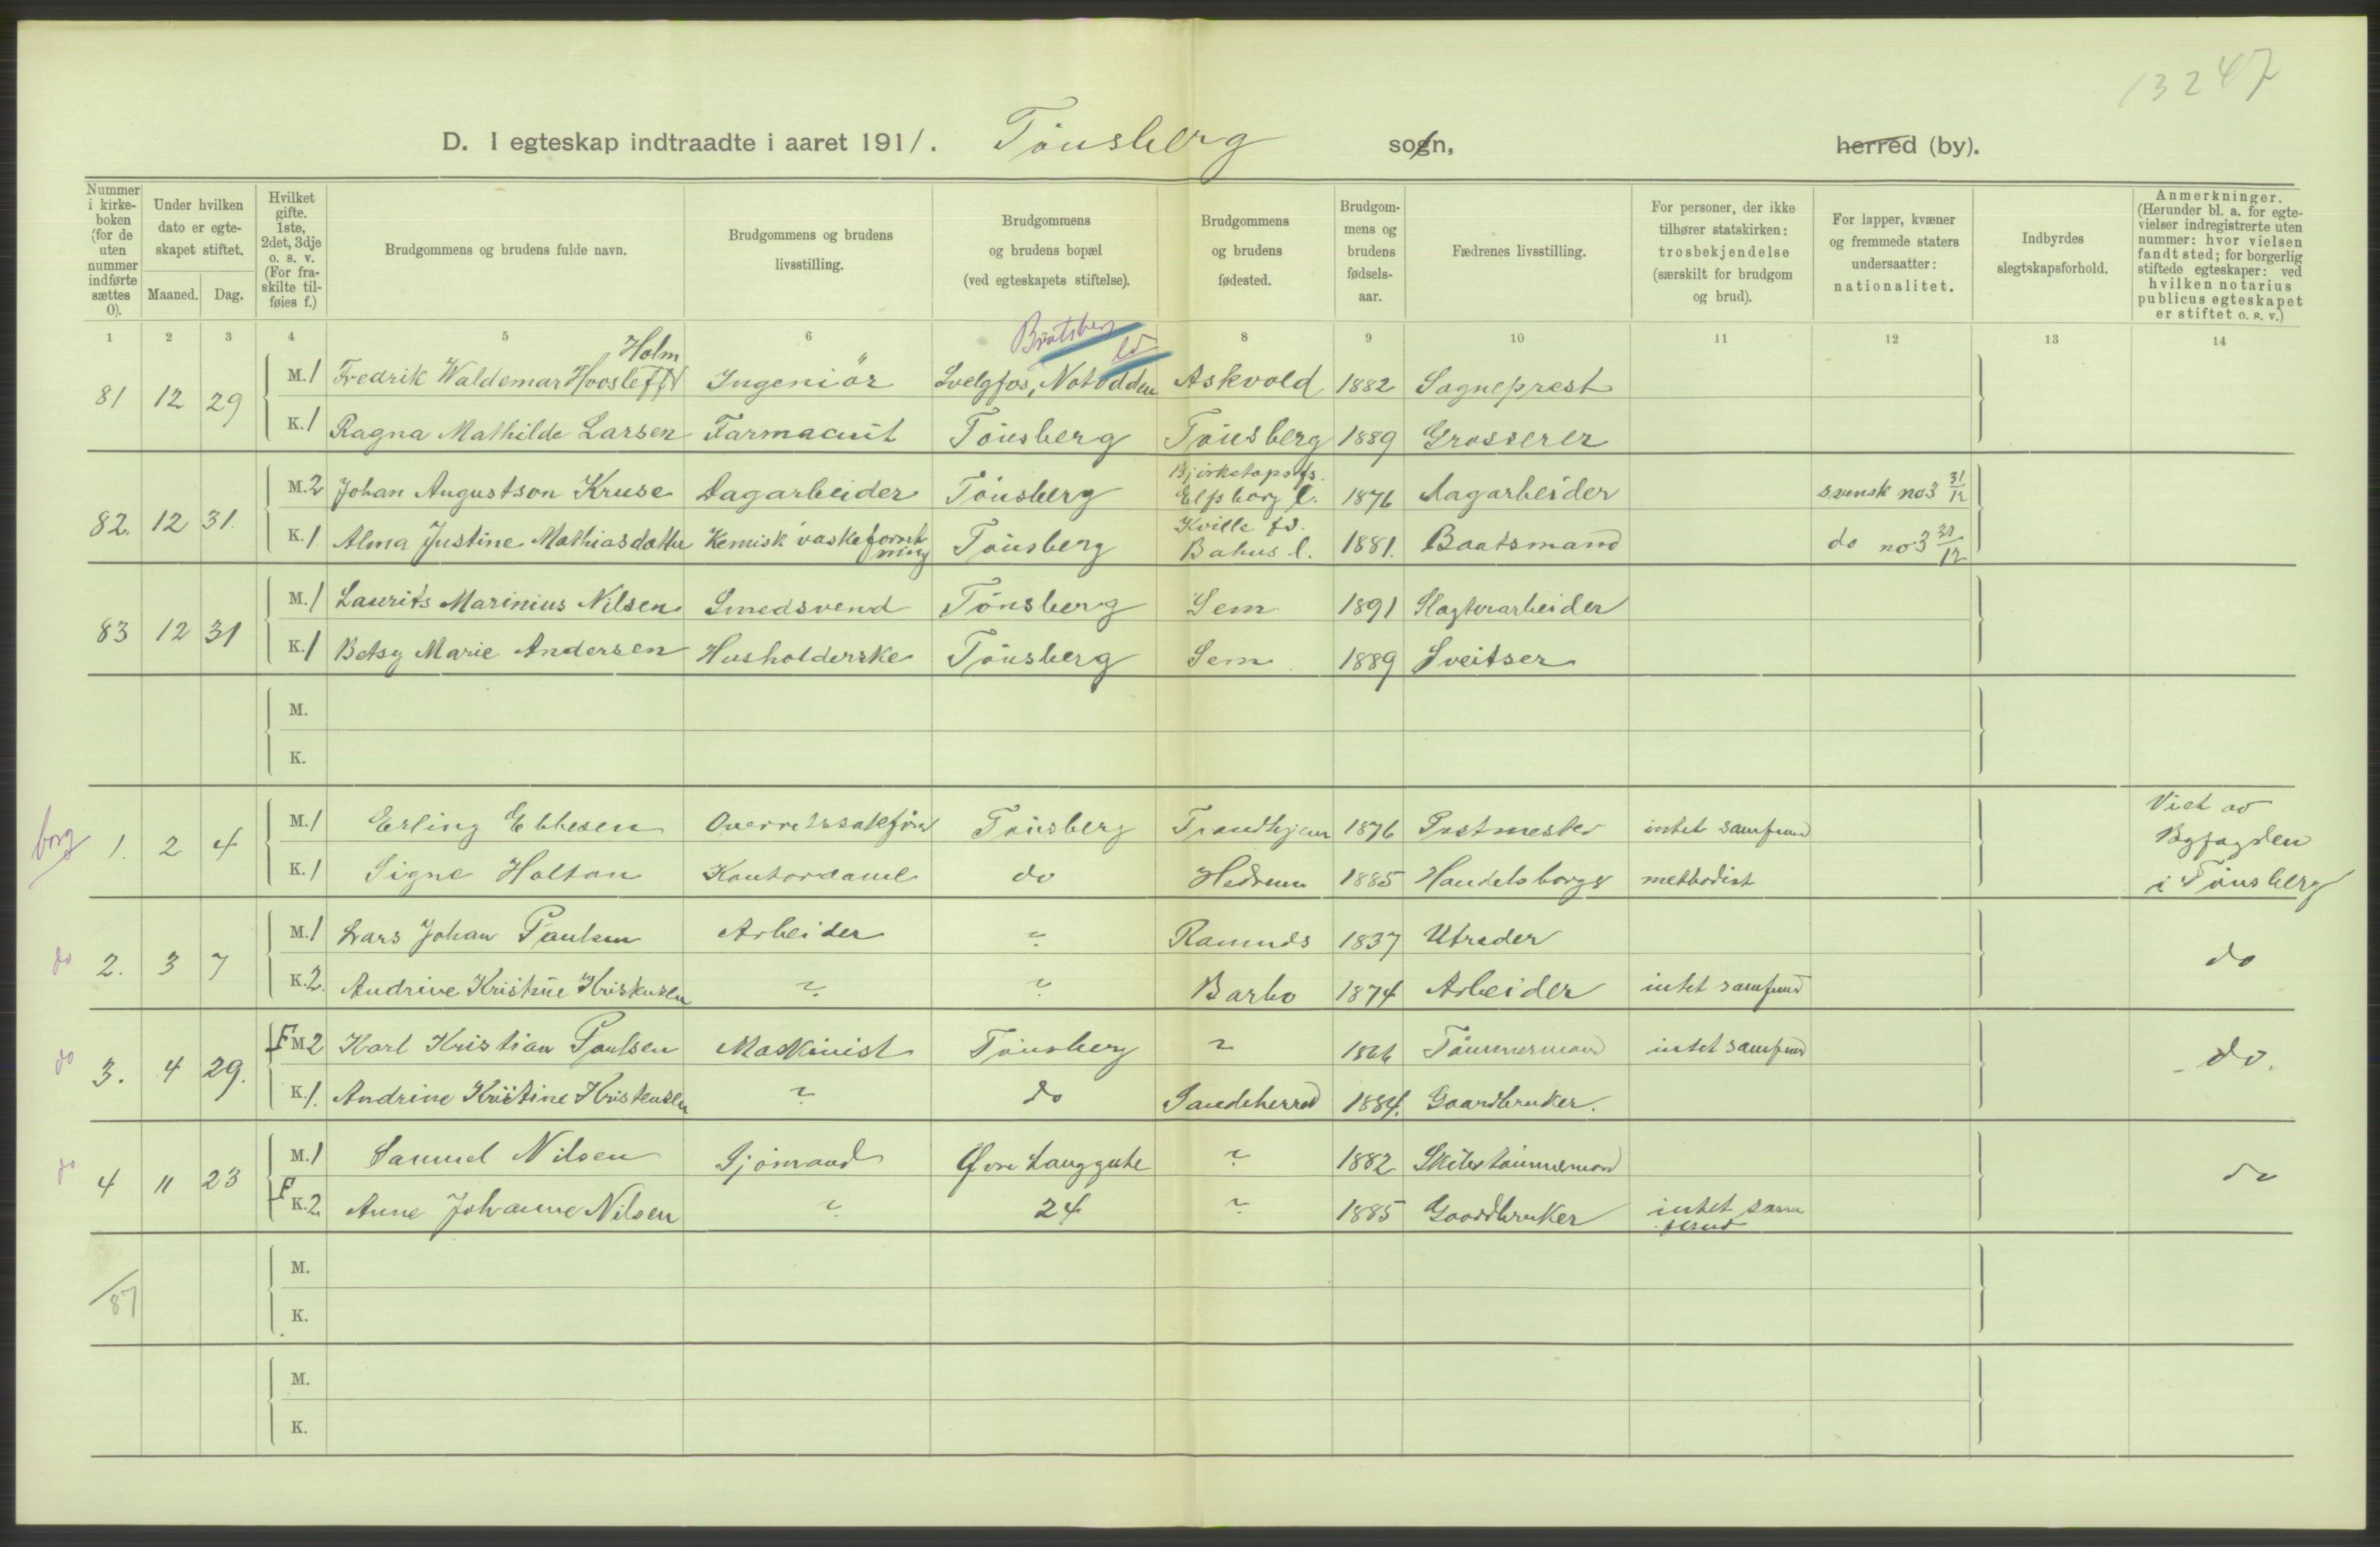 13247
D. I egteskap indtraadte i aaret 1911. Tönsberg sogn, herred (by).
Nummer i kirkeboken (for de uten nummer indførte sættes 0).
Under hvilken dato er egteskapet stiftet.
Maaned. Dag.
Hvilket gifte. 1ste, 2det, 3dje o. s. v. (For fraskilte tilføies f.)
Brudgommens og brudens fulde navn.
Brudgommens og brudens livsstilling.
Brudgommens og brudens bopæl (ved egteskapets stiftelse).
Brudgommens og brudens fødested.
Brudgommens og brudens fødselsaar.
Fædrenes livsstilling.
For personer, der ikke tilhører statskirken: trosbekjendelse (særskilt for brudgom og brud).
For lapper, kvæner og fremmede staters undersaatter: nationalitet.
Indbyrdes slegtskapsforhold.
Anmerkninger. (Herunder bl. a. for egtevielser indregistrerte uten nummer: hvor vielsen fandt sted; for borgerlig stiftede egteskaper: ved hvilken notarius publicus egteskapet er stiftet o. s. v.)
1 2 3 4 5 6 8 9 10 11 12 13 14
Holm Bratsberg
81 12 29 M. 1 Fredrik Waldemar Ingeniör Svelgfos, Notodden Askvold 1882 Sogneprest
K. 1 Ragna Mathilde Larsen Farmaceut Tönsberg Tönsberg 1889 Grosserer
82. 12 31. M. 2 Johan Augustson Kruse Dagarbeider Tönsberg Elfsborg l. 1876 Dagarbeider svensk no 3 31/12
K. 1 Alma Justine Mathiasdatter Kemisk vaskeforretning Tönsberg Kville fs. Bahus l. 1881. Baatsmand do no 3 31/12
83 12 31 M. 1 Laurits Marinius Nilsen Smedsvend Tönsberg Sem 1891 Slagterarbeider
K. 1 Betsy Marie Andersen Husholderske Tönsberg Sem 1889 Sveitser
M.
K.
borg 1. 2 4 M. 1 Erling Ebbesen Overretssakförer Tönsberg Trondhjem 1876 Postmester intet samfund Viet av Byfogden i Tönsberg
K. 1 Signe Holtan Kontordame do Hedrum 1885 Handelsborger methodist
do 2. 3 7 M. 1 Lars Johan Paulsen Arbeider ? Ramnes 1837 Utreder do
K. 2. Andrine Kristine Kristensen ? ? Barbo 1874 Arbeider intet samfund
do 3. 4 29. F M 2 Karl Kristian Paulsen Maskinist Tönsberg ? 1866 Tömmermand intet samfund do.
K. 1. Andrine Kristine Kristensen ? do Sandeherred 1884. Gaardbruker.
do 4 11 23 M. 1 Samuel Nilsen Sjömand Øvre Langgate ? 1882 Skibstömmermand do
F K. 2 Anne Johanne Nilsen ? 24 ? 1885 Gaardbruker intet samfund
M.
/87
K.
M.
K.